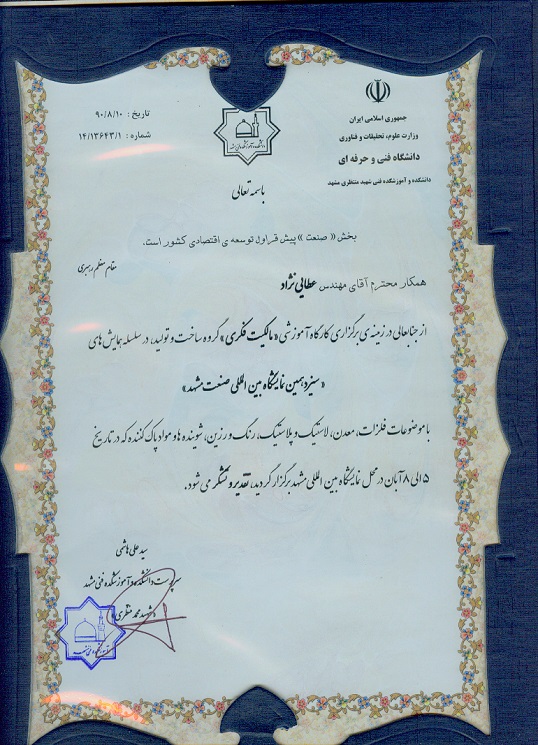 جمهوری اسلامی ایران
وزارت علوم، تحقیقات و فناوری
دانشگاه فنی و حرفه ای
دانشکده و آموزشکده فنی شهید منتظری مشهد
تاریخ : ۹۰/۸/۱۰
شماره : ۱۴/۱۳۶۴۳/۱
باسمه تعالی
بخش « صنعت » پیش قراول توسعه ی اقتصادی کشور است.
مقام معظم رهبری
همکار محترم آقای مهندس عطایی نژاد
از جنابعالی در زمینه ی برگزاری کارگاه آموزشی « مالکیت فکری » گروه ساخت و تولید، در سلسله همایش های
« سیزدهمین نمایشگاه بین المللی صنعت مشهد »
با موضوعات فلزات، معدن، لاستیک و پلاستیک، رنگ و رزین، شوینده ها و مواد پاک کننده که در تاریخ
۵ الی ۸ آبان در محل نمایشگاه بین المللی مشهد برگزار گردید، تقدیر و تشکر می شود.
سید علی هاشمی
سرپرست دانشکده و آموزشکده فنی مشهد
« شهید محمد منتظری »